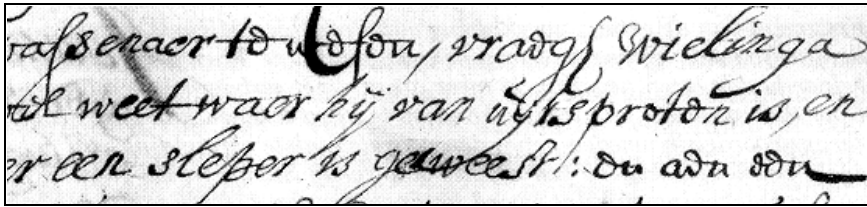 wassenaer te wesen, vraegs Wielinga
wel weet waer hij van uijtsproten is, en
er een sleper is geweest: en aen een